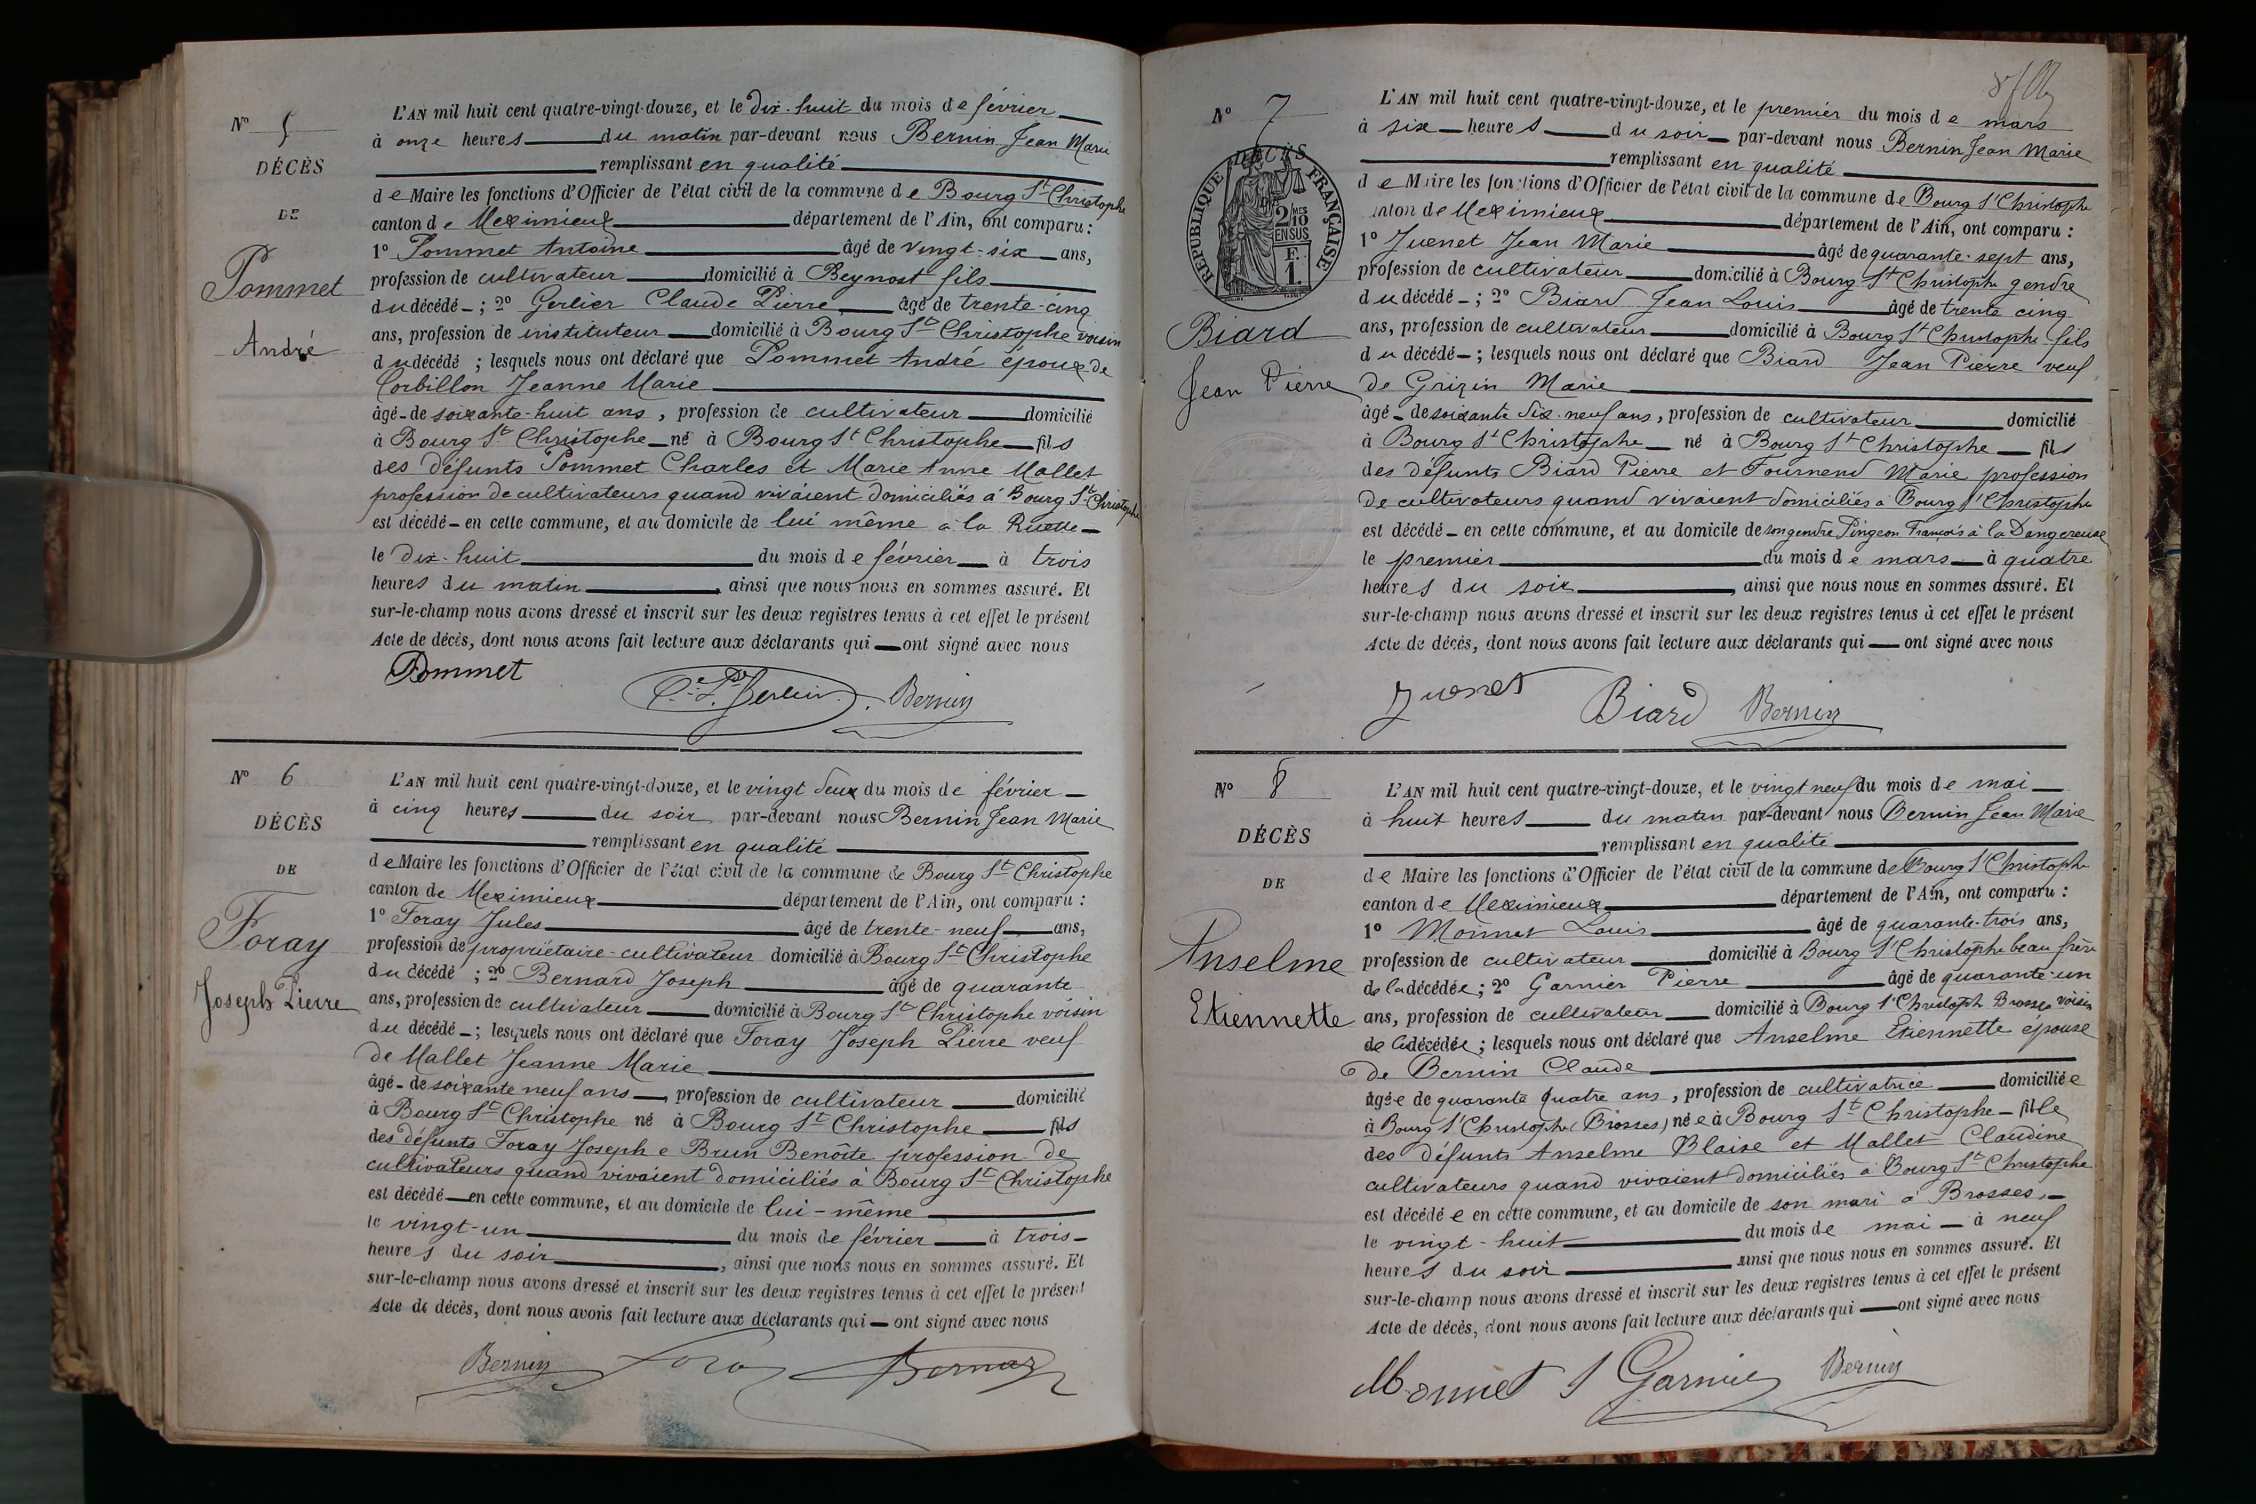 N° 5
DÉCÈS
DE
Pommet
André
L'AN mil huit cent quatre-vingt-douze, et le dix-huit du mois de février
à onze heures du matin par-devant nous Bernin Jean Marie
remplissant en qualité
de Maire les fonctions d'Officier de l'état civil de la commune de Bourg St Christophe
canton de Meximieux département de l'Ain, ont comparu :
1° Pommet Antoine âgé de vingt-six ans,
profession de cultivateur domicilié à Beynost fils
du décédé ; 2° Gerlier Claude Pierre âgé de trente-cinq
ans, profession de instituteur domicilié à Bourg St Christophe voisin
du décédé ; lesquels nous ont déclaré que Pommet André époux de
Corbillon Jeanne Marie
âgé de soixante-huit ans, profession de cultivateur domicilié
à Bourg St Christophe né à Bourg St Christophe fils
des défunts Pommet Charles et Marie Anne Mallet
profession de cultivateurs quand vivaient domiciliés à Bourg St Christophe
est décédé en cette commune, et au domicile de lui même à la Ruette
le dix-huit du mois de février à trois
heures du matin, ainsi que nous nous en sommes assuré. Et
sur-le-champ nous avons dressé et inscrit sur les deux registres tenus à cet effet le présent
Acte de décès, dont nous avons fait lecture aux déclarants qui ont signé avec nous
Pommet C. P. Gerlier Bernin
N° 6
DÉCÈS
DE
Foray
Joseph Pierre
L'AN mil huit cent quatre-vingt-douze, et le vingt deux du mois de février
à cinq heures du soir par-devant nous Bernin Jean Marie
remplissant en qualité
de Maire les fonctions d'Officier de l'état civil de la commune de Bourg St Christophe
canton de Meximieux département de l'Ain, ont comparu :
1° Foray Jules âgé de trente-neuf ans,
profession de propriétaire-cultivateur domicilié à Bourg St Christophe
du décédé ; 2° Bernard Joseph âgé de quarante
ans, profession de cultivateur domicilié à Bourg St Christophe voisin
du décédé ; lesquels nous ont déclaré que Foray Joseph Pierre veuf
de Mallet Jeanne Marie
âgé de soixante neuf ans, profession de cultivateur domicilié
à Bourg St Christophe né à Bourg St Christophe fils
des défunts Foray Joseph e Brun Benoîte profession de
cultivateurs quand vivaient domiciliés à Bourg St Christophe
est décédé en cette commune, et au domicile de lui-même
le vingt-un du mois de février à trois
heures du soir, ainsi que nous nous en sommes assuré. Et
sur-le-champ nous avons dressé et inscrit sur les deux registres tenus à cet effet le présent
Acte de décès, dont nous avons fait lecture aux déclarants qui ont signé avec nous
Bernin Foray Bernard
N° 7
DÉCÈS
DE
RÉPUBLIQUE FRANÇAISE
2/10 MES
EN SUS
F.
1.
Biard
Jean Pierre
L'AN mil huit cent quatre-vingt-douze, et le premier du mois de mars
à six heures du soir par-devant nous Bernin Jean Marie
remplissant en qualité
de Maire les fonctions d'Officier de l'état civil de la commune de Bourg St Christophe
canton de Meximieux département de l'Ain, ont comparu :
1° Juenet Jean Marie âgé de quarante-sept ans,
profession de cultivateur domicilié à Bourg St Christophe gendre
du décédé ; 2° Biard Jean Louis âgé de trente cinq
ans, profession de cultivateur domicilié à Bourg St Christophe fils
du décédé ; lesquels nous ont déclaré que Biard Jean Pierre veuf
de Grizin Marie
âgé de soixante dix-neuf ans, profession de cultivateur domicilié
à Bourg St Christophe né à Bourg St Christophe fils
des défunts Biard Pierre et Fournend Marie profession
de cultivateurs quand vivaient domiciliés à Bourg St Christophe
est décédé en cette commune, et au domicile de son gendre Pingeon François à la Dangereuse
le premier du mois de mars à quatre
heures du soir, ainsi que nous nous en sommes assuré. Et
sur-le-champ nous avons dressé et inscrit sur les deux registres tenus à cet effet le présent
Acte de décès, dont nous avons fait lecture aux déclarants qui ont signé avec nous
Juenet Biard Bernin
N° 8
DÉCÈS
DE
Anselme
Etiennette
L'AN mil huit cent quatre-vingt-douze, et le vingt neuf du mois de mai
à huit heures du matin par-devant nous Bernin Jean Marie
remplissant en qualité
de Maire les fonctions d'Officier de l'état civil de la commune de Bourg St Christophe
canton de Meximieux département de l'Ain, ont comparu :
1° Monnet Louis âgé de quarante-trois ans,
profession de cultivateur domicilié à Bourg St Christophe beau frère
de la décédée ; 2° Garnier Pierre âgé de quarante-un
ans, profession de cultivateur domicilié à Bourg St Christoph Brosses voisin
de la décédée ; lesquels nous ont déclaré que Anselme Etiennette épouse
de Bernin Claude
âgée de quarante quatre ans, profession de cultivatrice domiciliée
à Bourg St Christophe (Brosses) née à Bourg St Christophe fille
des défunts Anselme Blaise et Mallet Claudine
cultivateurs quand vivaient domiciliés à Bourg St Christophe
est décédée en cette commune, et au domicile de son mari à Brosses,
le vingt-huit du mois de mai à neuf
heures du soir ainsi que nous nous en sommes assuré. Et
sur-le-champ nous avons dressé et inscrit sur les deux registres tenus à cet effet le présent
Acte de décès, dont nous avons fait lecture aux déclarants qui ont signé avec nous
Monnet Garnier Bernin